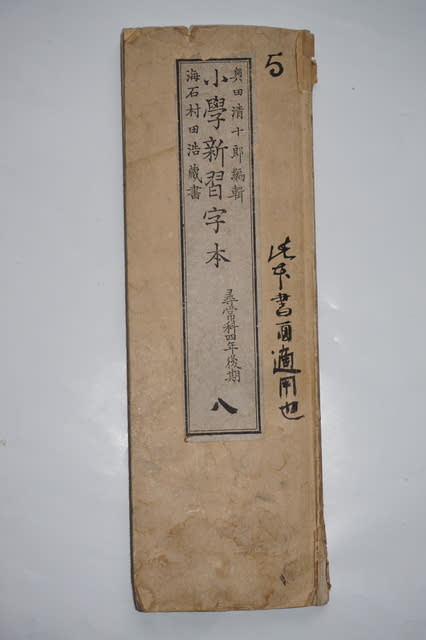 5
此本書面適用也
奥田清十郎編輯
小學新習字本
尋常科四年後期
八
海石村田浩藏書